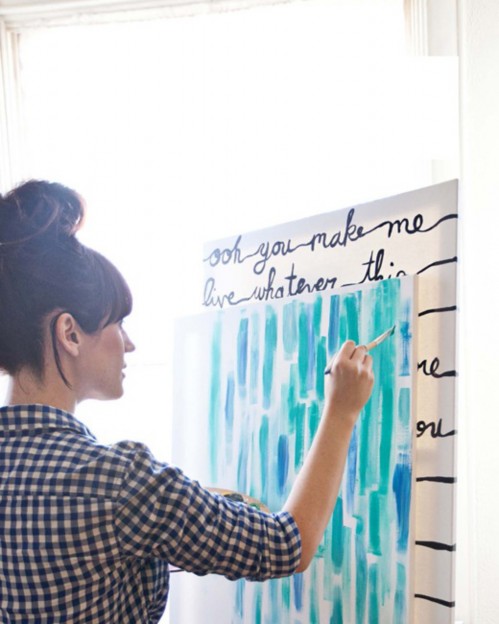 ooh you make me
live whatever this
re
ou